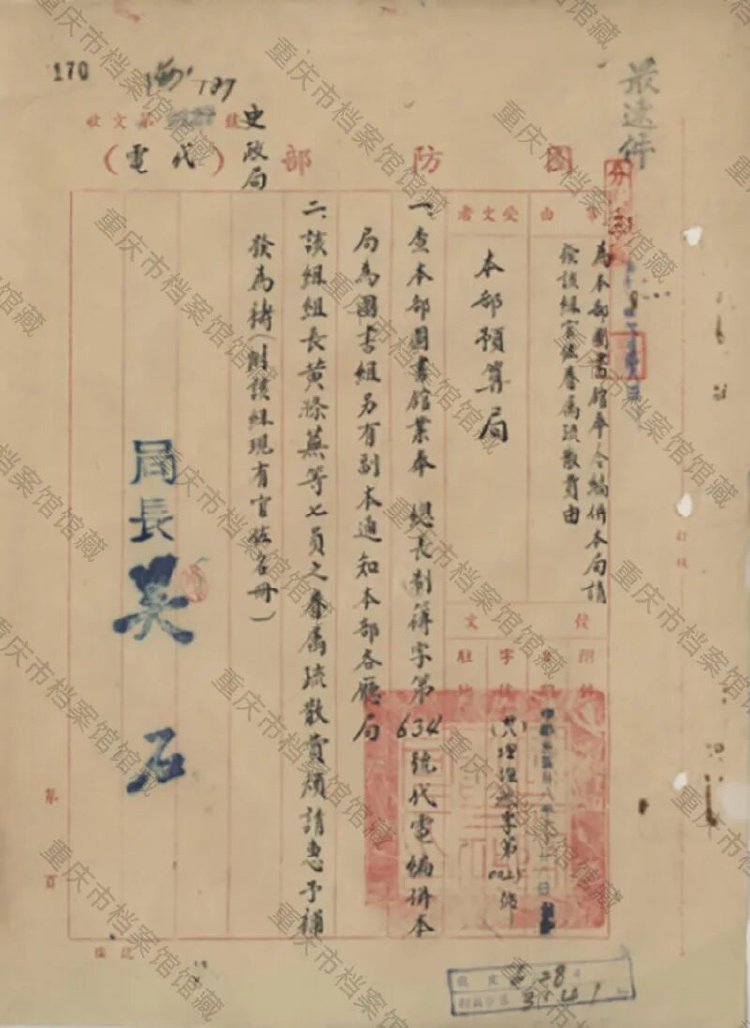 最速件
170
787
收文第 號
史政局
國防部(代電)
事由
為本部圖書館奉令編併本局請
發該組官佐眷屬疏散費由
受文者
本部預算局
發文
附件
日期
字號
駐地
中華民國 八年 月廿 日
字第0025號
一、查本部圖書館業奉 總長制籌字第634號代電編併本
局為圖書組另有副本通知本部各廳局
二、該組組長黃滌蕪等七員之眷屬疏散費煩請惠予補
發為禱(附該組現有官佐名冊)
局長吳石
第 頁
收文 28
3541
重庆市档案馆馆藏